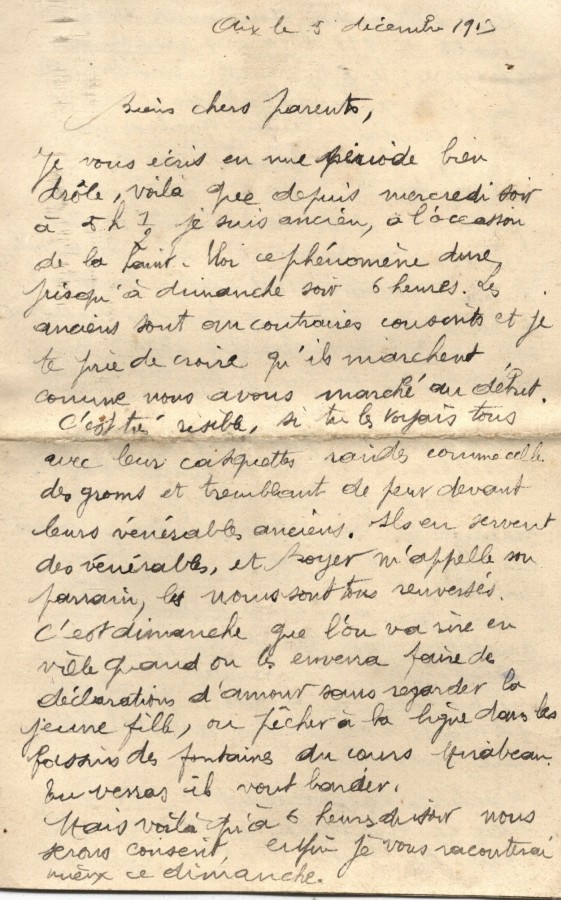 Aix le 5 décembre 1913
Biens chers parents,
Je vous écris en une période bien
drôle, voilà que depuis mercredi soir
à 5 h 1/2 je suis ancien, à l'occasion
de la Saint. Eloi ce phénomène dure
jusqu'à dimanche soir 6 heures. Les
anciens sont au contraires conscrits et je
te prie de croire qu'ils marchent
comme nous avons marché au début.
C'est très risible, si tu les voyais tous
avec leur casquettes raides comme celle
des grooms et tremblant de peur devant
leurs vénérables anciens. Ils en servent
des vénérables, et Royer m'appelle son
parrain, les noms sont tous renversés.
C'est dimanche que l'on va rire en
ville quand on les enverra faire des
déclarations d'amour sans regarder la
jeune fille, ou pêcher à la ligne dans les
bassins des fontaines du cours Mirabeau.
Tu verras ils vont barder.
Mais voilà qu'à 6 heures du soir nous
serons conscrit, enfin je vous raconterai
mieux ce dimanche.